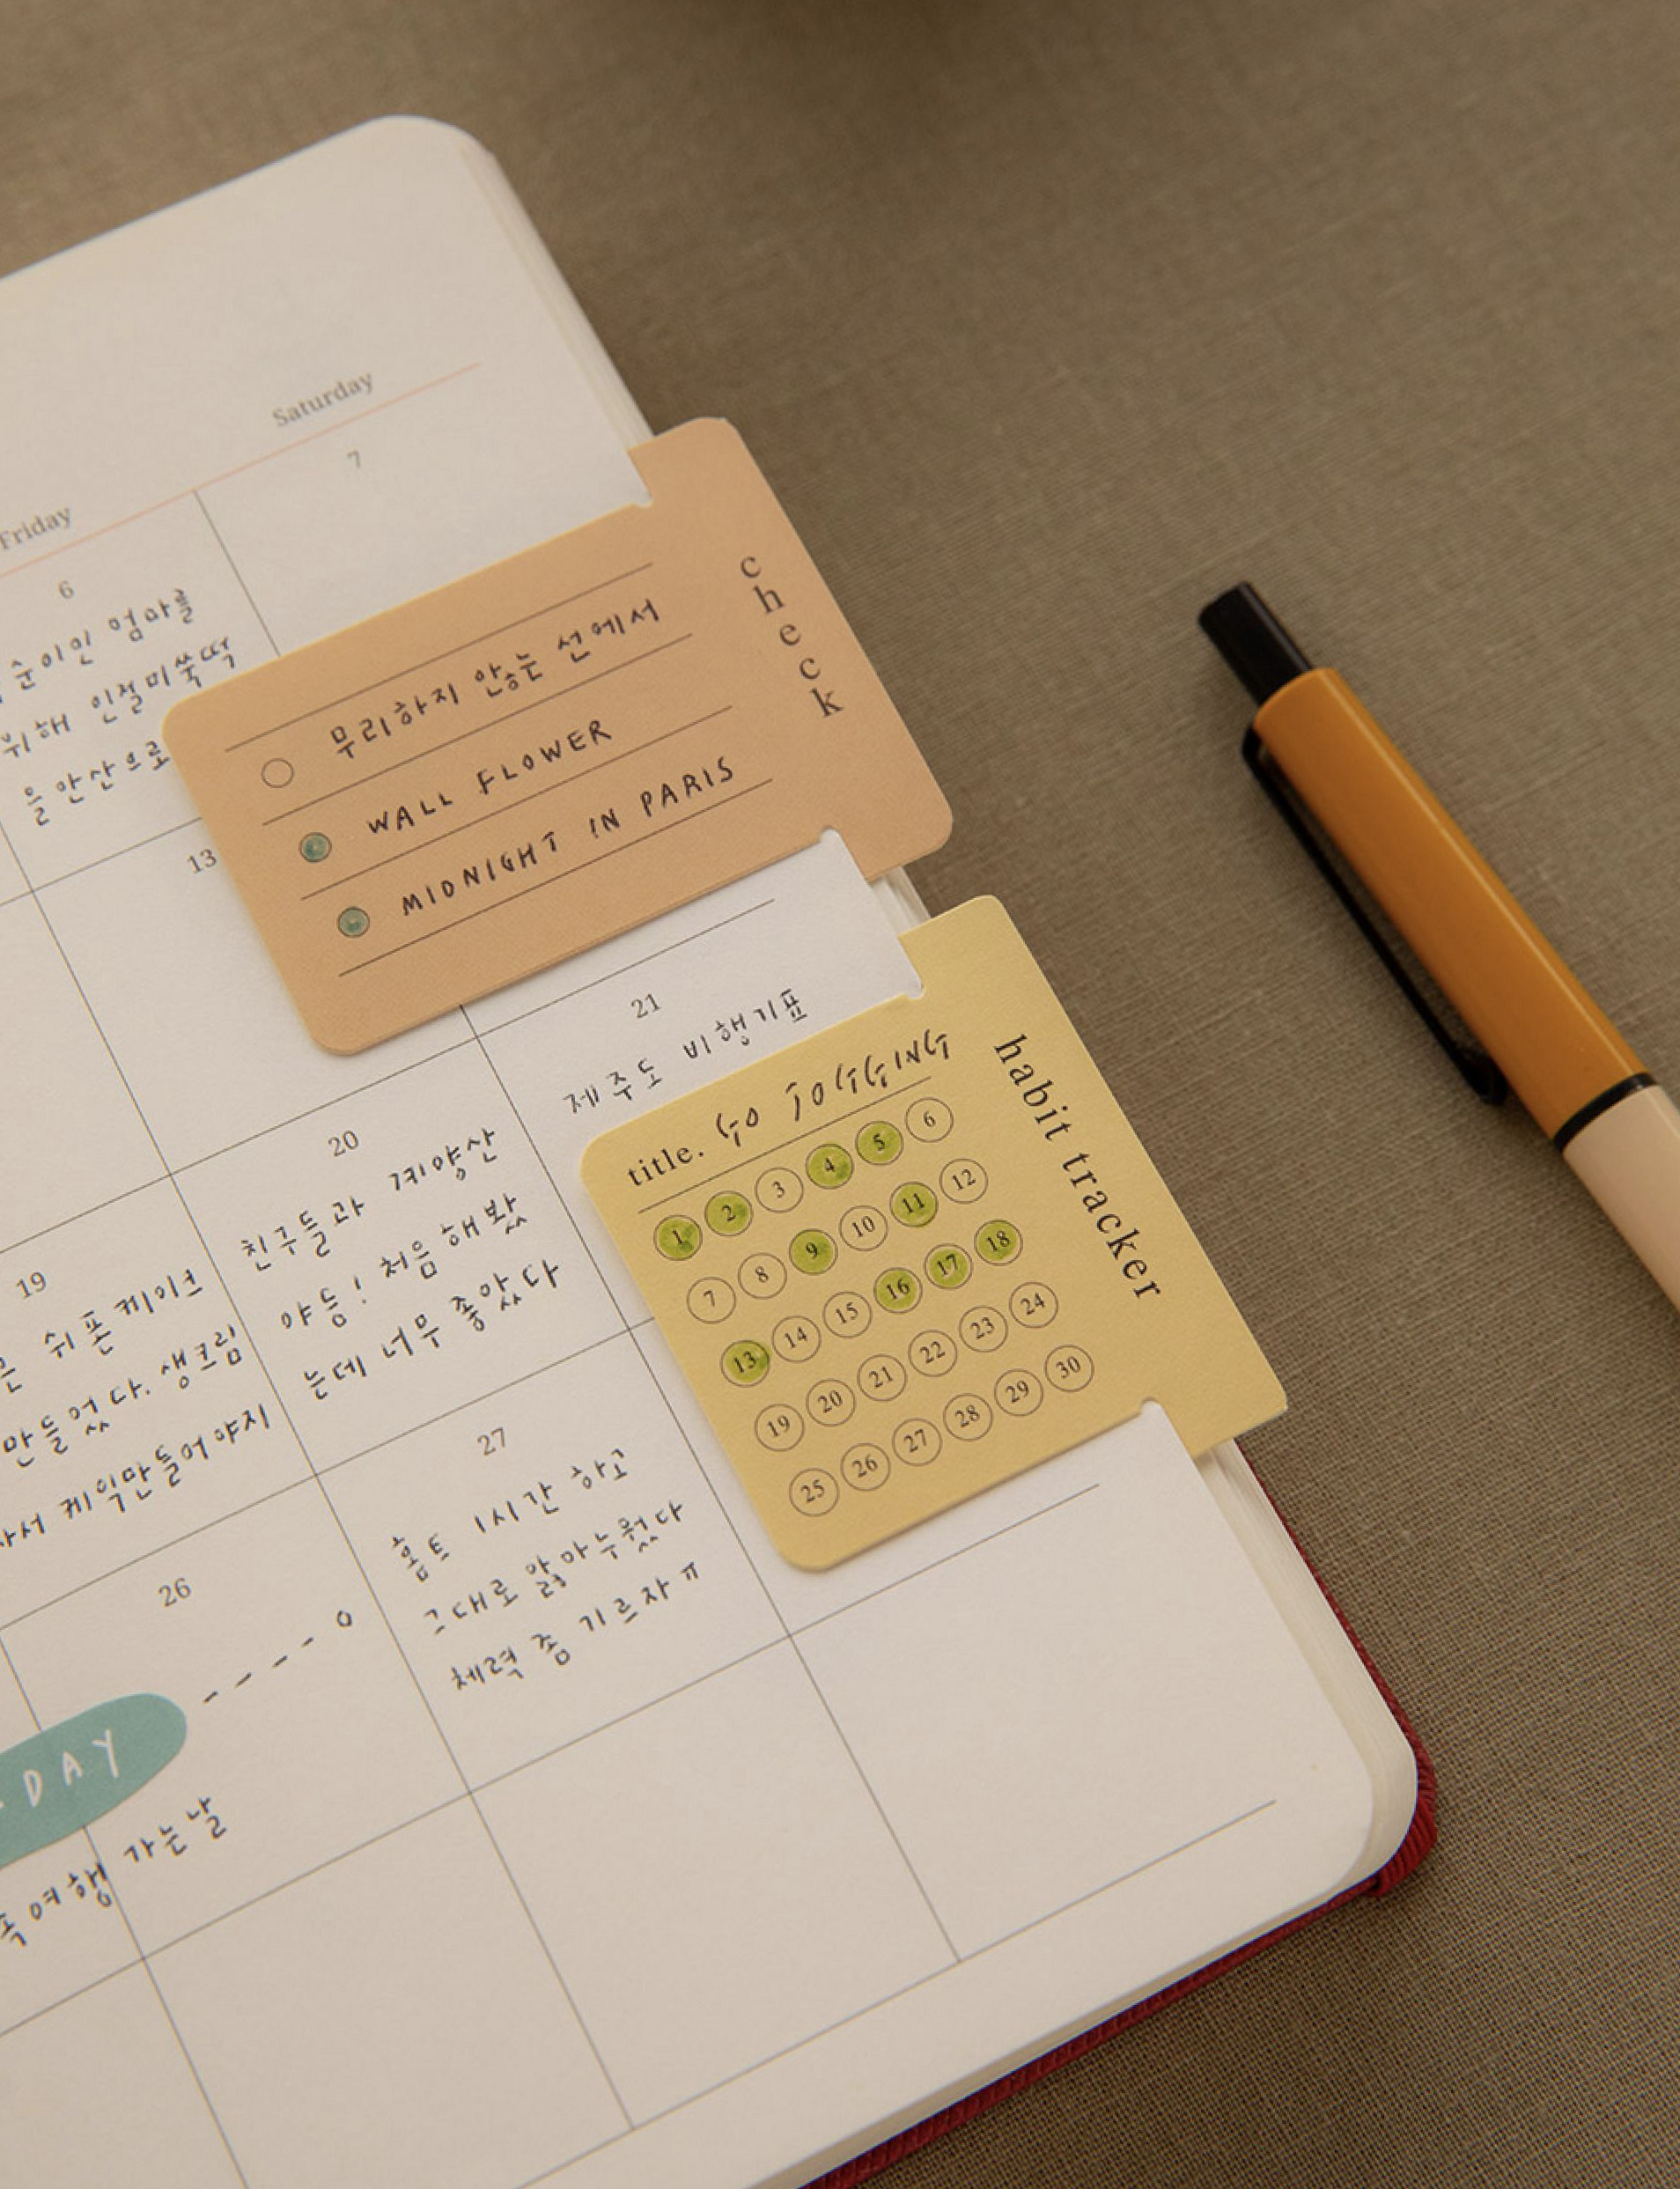 Friday
Saturday
6
순이인 엄마를
위해 인절미쑥떡
을 안산으로
7
check
무리하지 않는 선에서
WALL FLOWER
MIDNIGHT IN PARIS
13
19
쉬폰케이크
만들었다. 생크림
사서 케익만들어야지
20
친구들과 계양산
야등! 처음 해봤
는데 너무 좋았다
21
제주도 비행기표
habit tracker
title. GO JOGGING
1 2 3 4 5 6
7 8 9 10 11 12
13 14 15 16 17 18
19 20 21 22 23 24
25 26 27 28 29 30
26
DAY
여행 가는날
27
홈트 1시간 하고
그대로 앓아누웠다
체력 좀 기르자 ㅠ